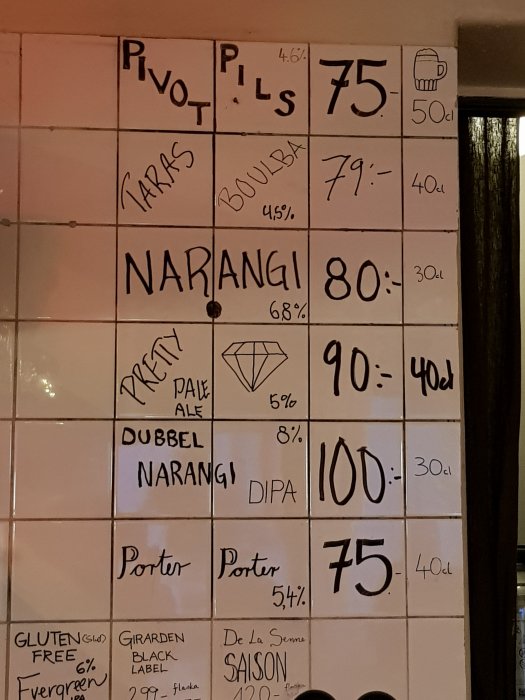 PIVOT PILS 4.6% 75:- 50cl
TARAS BOULBA 4,5% 79:- 40cl
NARANGI 6,8% 80:- 30cl
PRETTY PALE ALE 5% 90:- 40cl
DUBBEL NARANGI DIPA 8% 100:- 30cl
Porter Porter 5,4% 75:- 40cl
GLUTEN
FREE
6%
Evergreen
IPA
GIRARDEN
BLACK
LABEL
299- flaska
De La Senne
SAISON
120- flaska